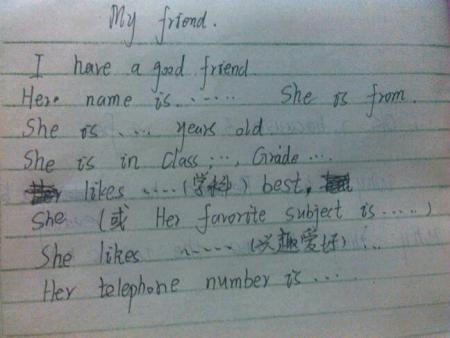 My friend.
I have a good friend
Her name is...... She is from.
She is ... years old
She is in Class ..., Grade ...
likes ..... (学科) best,
She (或 Her favorite subject is .....)
She likes ...... (兴趣爱好) ...
Her telephone number is ...